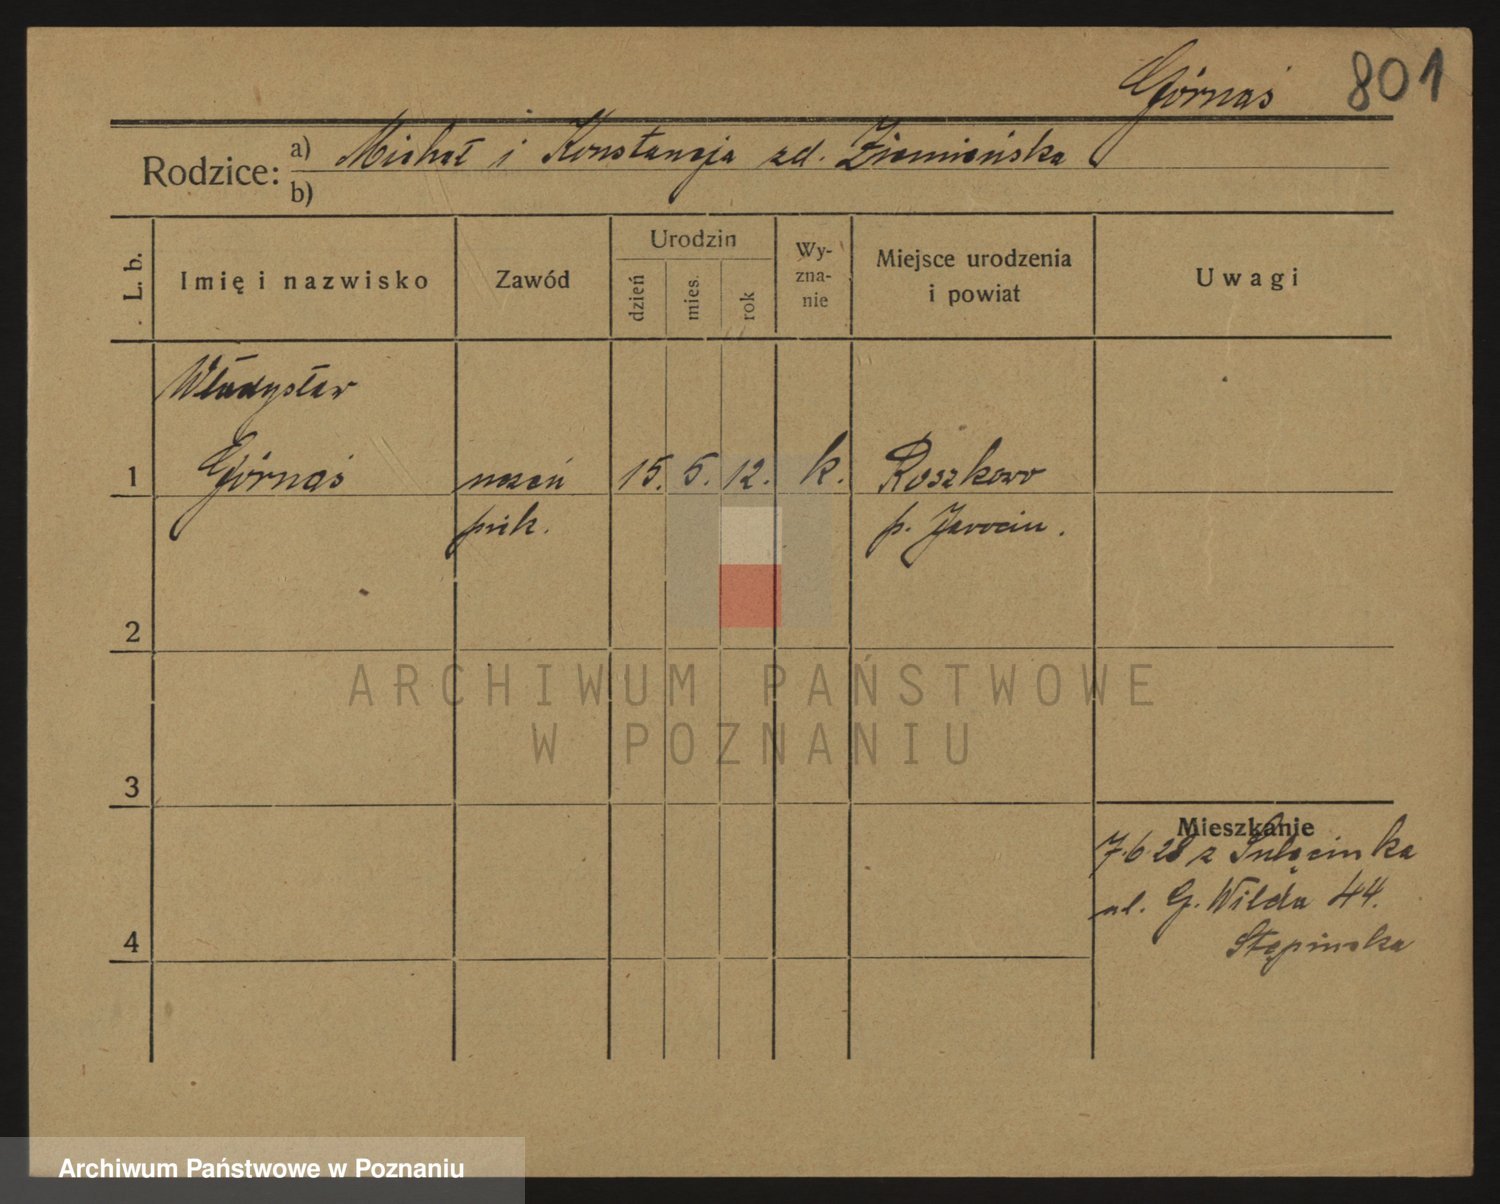 Górnaś 801
Rodzice: a) Michał i Konstancja zd. Ziemieńska
b)
L. b. Imię i nazwisko Zawód Urodzin dzień mies. rok Wy-zna-nie Miejsce urodzenia i powiat Uwagi
Władysław
1 Górnaś uczeń 15. 5. 12. k. Roszkowo
piek. p. Jarocin.
2
ARCHIWUM PAŃSTWOWE
W POZNANIU
3
Mieszkanie
7.6.28 z Sulęcinka
ul. G. Wilda 44.
4 Stępińska
Archiwum Państwowe w Poznaniu